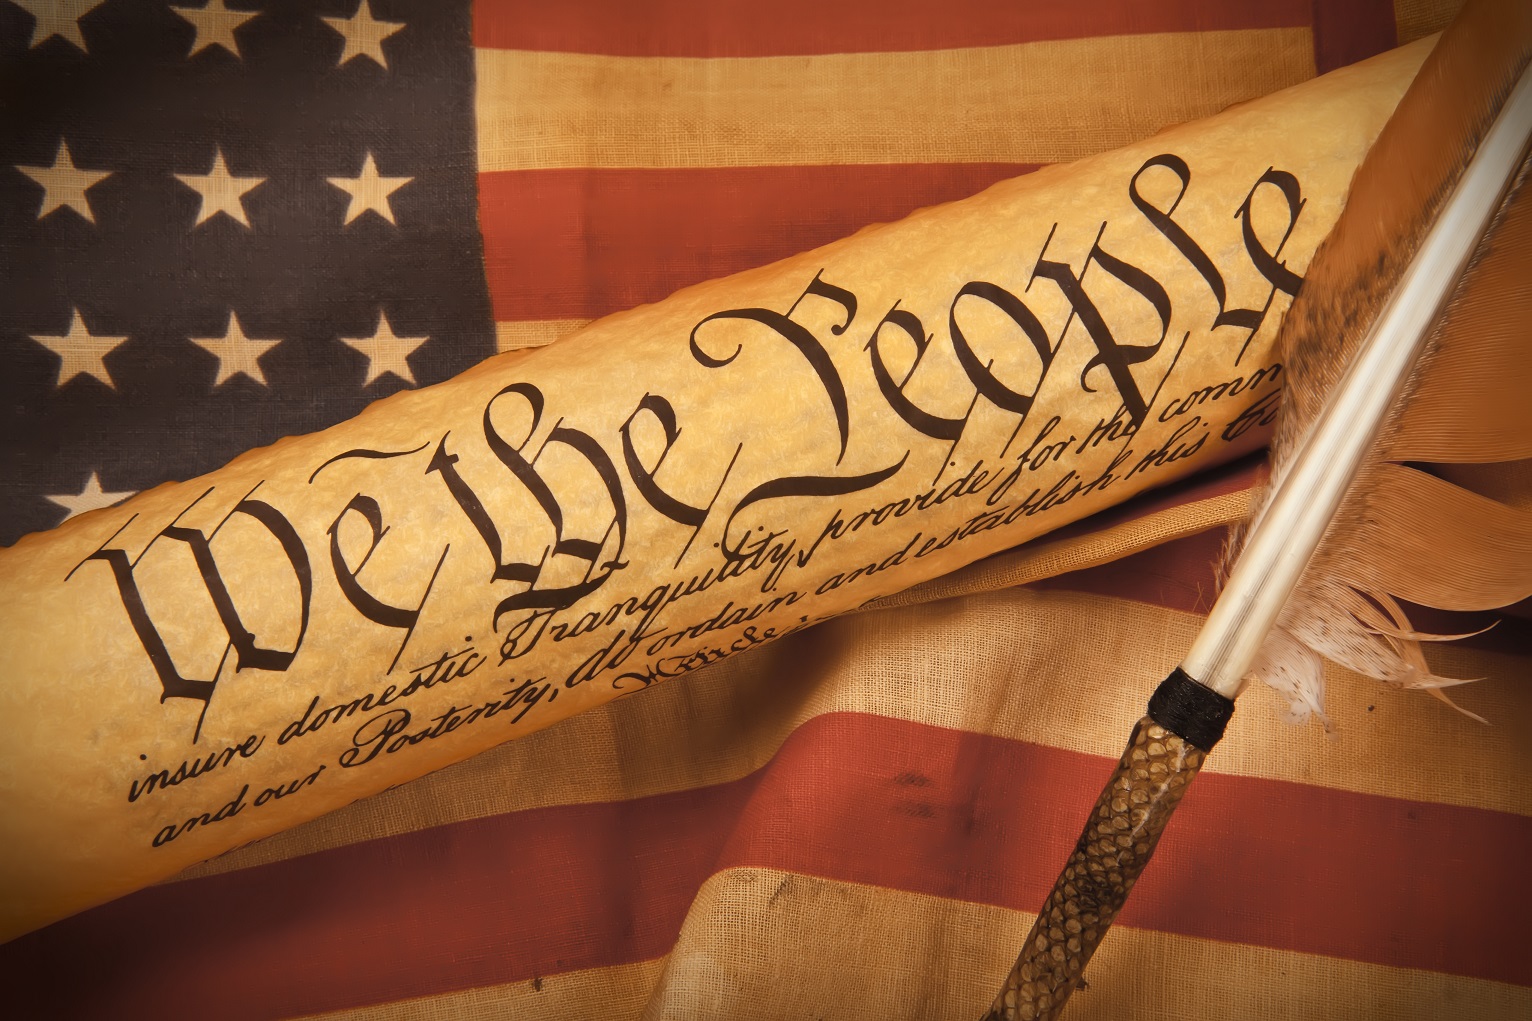 We the People
insure domestic Tranquility, provide for the comm
and our Posterity, do ordain and establish this Co